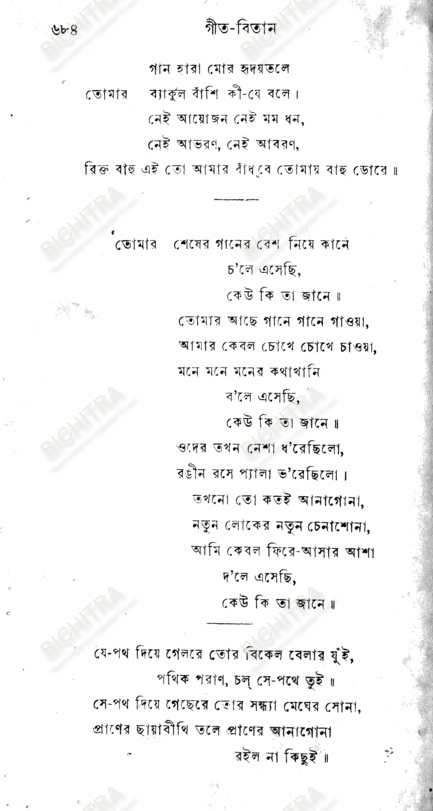 ৬৮৪ গীত-বিতান
গান হারা মোর হৃদয়তলে
তোমার ব্যাকুল বাঁশি কী-যে বলে।
নেই আয়োজন নেই মম ধন,
নেই আভরণ, নেই আবরণ,
রিক্ত বাহু এই তো আমার বাঁধবে তোমায় বাহু ডোরে॥
তোমার শেষের গানের রেশ নিয়ে কানে
চ'লে এসেছি,
কেউ কি তা জানে॥
তোমার আছে গানে গানে গাওয়া,
আমার কেবল চোখে চোখে চাওয়া,
মনে মনে মনের কথাখানি
ব'লে এসেছি,
কেউ কি তা জানে॥
ওদের তখন নেশা ধ'রেছিলো,
রঙীন রসে প্যালা ভ'রেছিলো।
তখনো তো কতই আনাগোনা,
নতুন লোকের নতুন চেনাশোনা,
আমি কেবল ফিরে-আসার আশা
দ'লে এসেছি,
কেউ কি তা জানে॥
যে-পথ দিয়ে গেলরে তোর বিকেল বেলার যুঁই,
পথিক পরাণ, চল্ সে-পথে তুই॥
সে-পথ দিয়ে গেছেরে তোর সন্ধ্যা মেঘের সোনা,
প্রাণের ছায়াবীথি তলে প্রাণের আনাগোনা
রইল না কিছুই॥
BICHITRA